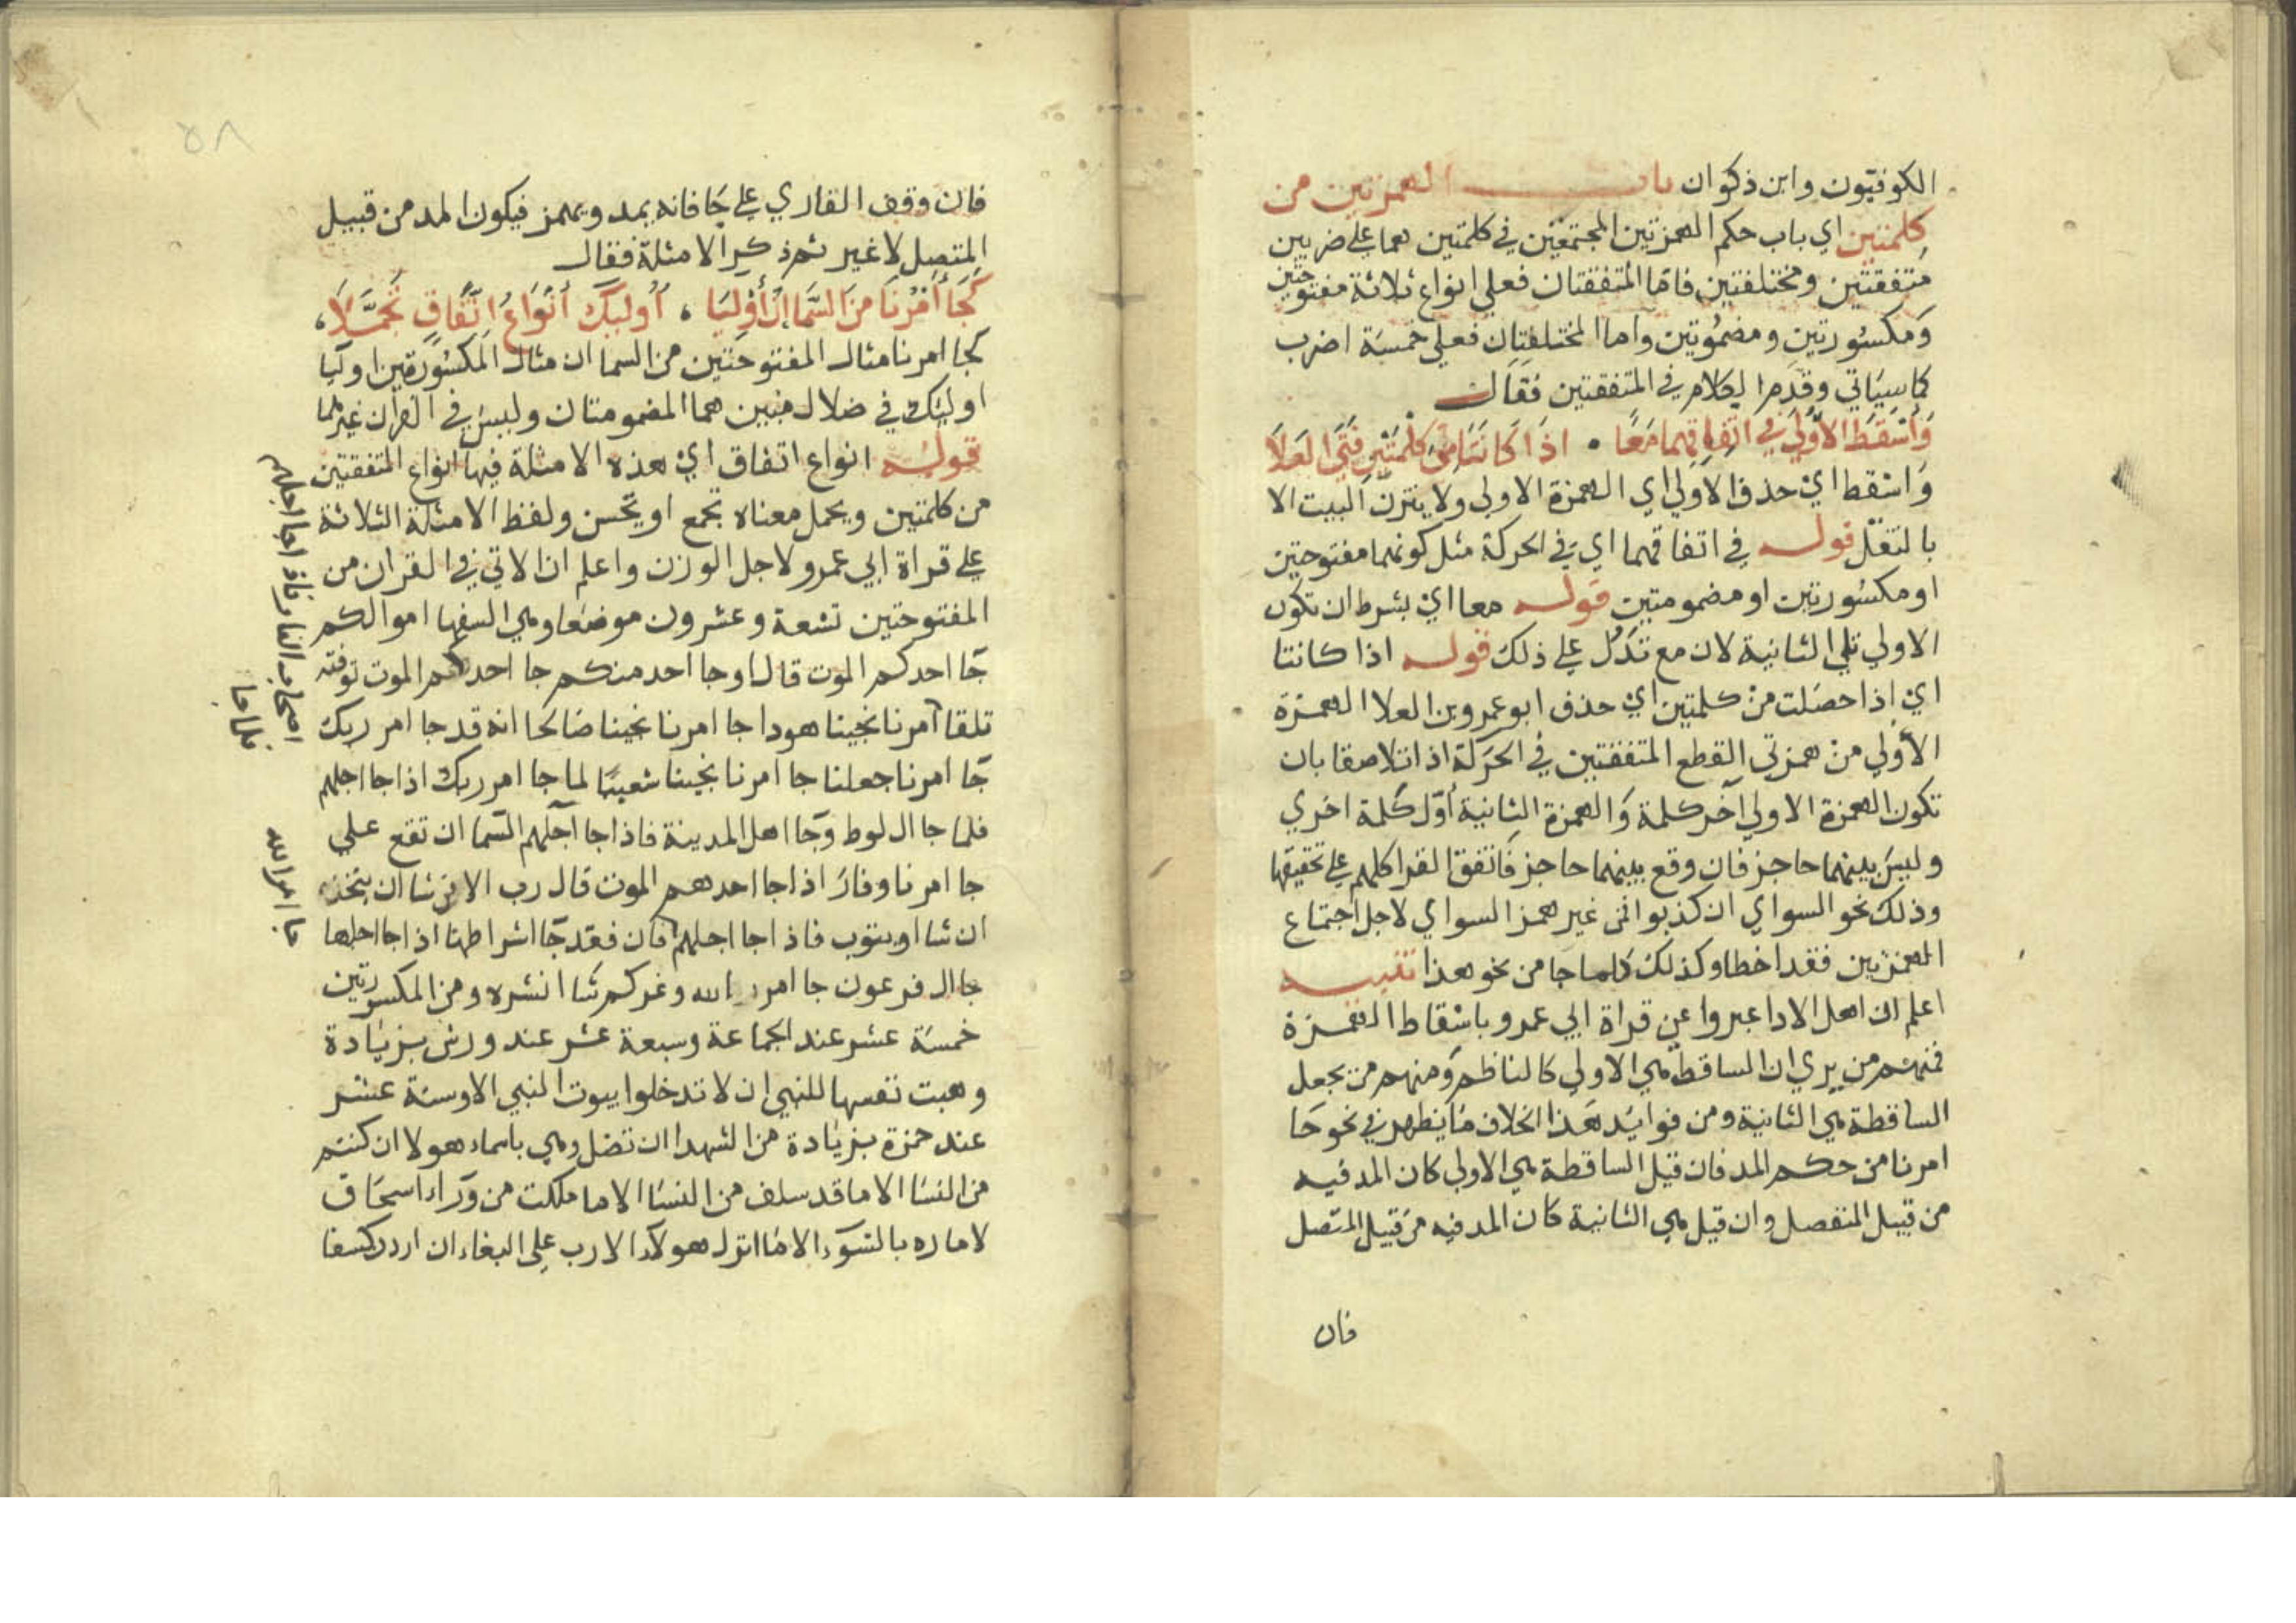 الكوفيون وابن ذكوان باب الهمزتين من
كلمتين اي باب حكم الهمزتين المجتمعتين في كلمتين هما علي ضربين
متفقتين ومختلفتين فاما المتفقتان فعلي انواع ثلاثة مفتوحتين
ومكسورتين ومضمومتين واما المختلفتان فعلي خمسة اضرب
كما سياتي وقدم الكلام في المتفقتين فقال
وَأَسْقَطَ الاُولَى في اتفاقهما مَعًا • اذَا كَانَتَا مِنْ كِلْمَتَيْنِ فَتَى العَلَا
واسقط اي حذف الاولي اي الهمزة الاولي ولا يتزن البيت الا
بالنقل قوله في اتفاقهما اي في الحركة مثل كونهما مفتوحتين
او مكسورتين او مضمومتين قوله معا اي بشرط ان تكون
الاولي تلي الثانية لان مع تدل علي ذلك قوله اذا كانتا
اي اذا حصلت من كلمتين اي حذف ابو عمرو بن العلا الهمزة
الاولي من همزتي القطع المتفقتين في الحركة اذا تلاصقا بان
تكون الهمزة الاولي آخر كلمة والهمزة الثانية اول كلمة اخري
وليس بينهما حاجز فان وقع بينهما حاجز فاتفق القرا كلهم علي تحقيقها
وذلك نحو السواي ان كذبوا فمن غير همز السواي لاجل اجتماع
الهمزتين فقد اخطا وكذلك كلما جا من نحو هذا تنبيه
اعلم ان اهل الادا عبروا عن قراة ابي عمرو باسقاط الهمزة
فمنهم من يري ان الساقطة هي الاولي كالناظم ومنهم من يجعل
الساقطة هي الثانية ومن فوايد هذا الخلاف ما يظهر في نحو جا
امرنا من حكم المد فان قيل الساقطة هي الاولي كان المد فيه
من قبيل المنفصل وان قيل هي الثانية كان المد فيه من قبيل المتصل
فان
٥٨
فان وقف القاري علي جا فانه يمد ويهمز فيكون المد من قبيل
المتصل لا غير ثم ذكر الامثلة فقال
كَجَا أَمْرُنَا مِنَ السَّمَا إِنَّ أَوْلِيَا ، أُولَئِكَ أَنْوَاعُ اتِّفَاقٍ تَجَمَّلَا ،
كجا امرنا مثال المفتوحتين من السما ان مثال المكسورتين اوليا
اوليك في ضلال مبين هما المضمومتان وليس في القران غيرهما
قوله انواع اتفاق اي هذه الامثلة فيها انواع المتفقتين
من كلمتين ويحمل معناه تجمع او تحسن ولفظ الامثلة الثلاثة
علي قراة ابي عمرو لاجل الوزن واعلم ان الاتي في القران من
المفتوحتين تسعة وعشرون موضعا وهي السفها اموالكم
جا احدكم الموت قال او جا احد منكم جا احدكم الموت توفته
تلقا امرنا نجينا هودا جا امرنا نجينا صالحا انه قد جا امر ربك
جا امرنا جعلنا جا امرنا نجينا شعيبا لما جا امر ربك اذا جا اجلهم
فلما جا ال لوط وجا اهل المدينة فاذا جا اجلهم السما ان تقع علي
جا امرنا وفار اذا جا احدهم الموت قال رب الا من شا ان يتخذ
ان شا او يتوب فاذا جا اجلهم فان فقد جا اشراطها اذا جا اجلها
جا ال فرعون جا امر الله وغركم شا انشره ومن المكسورتين
خمسة عشر عند الجماعة وسبعة عشر عند ورش بزيادة
وهبت نفسها للنبي ان لا تدخلوا بيوت النبي الا وستة عشر
عند حمزة بزيادة من الشهدا ان تضل وهي باسماء هولا ان كنتم
من النسا الا ما قد سلف من النسا الا ما ملكت من وراء اسحاق
لاماره بالسوء الا ما انزل هولاء الا رب علي البغاء ان اردن كسفا
اصحاب النار فاذا جا اجلهم
فلما جا
جا امر الله